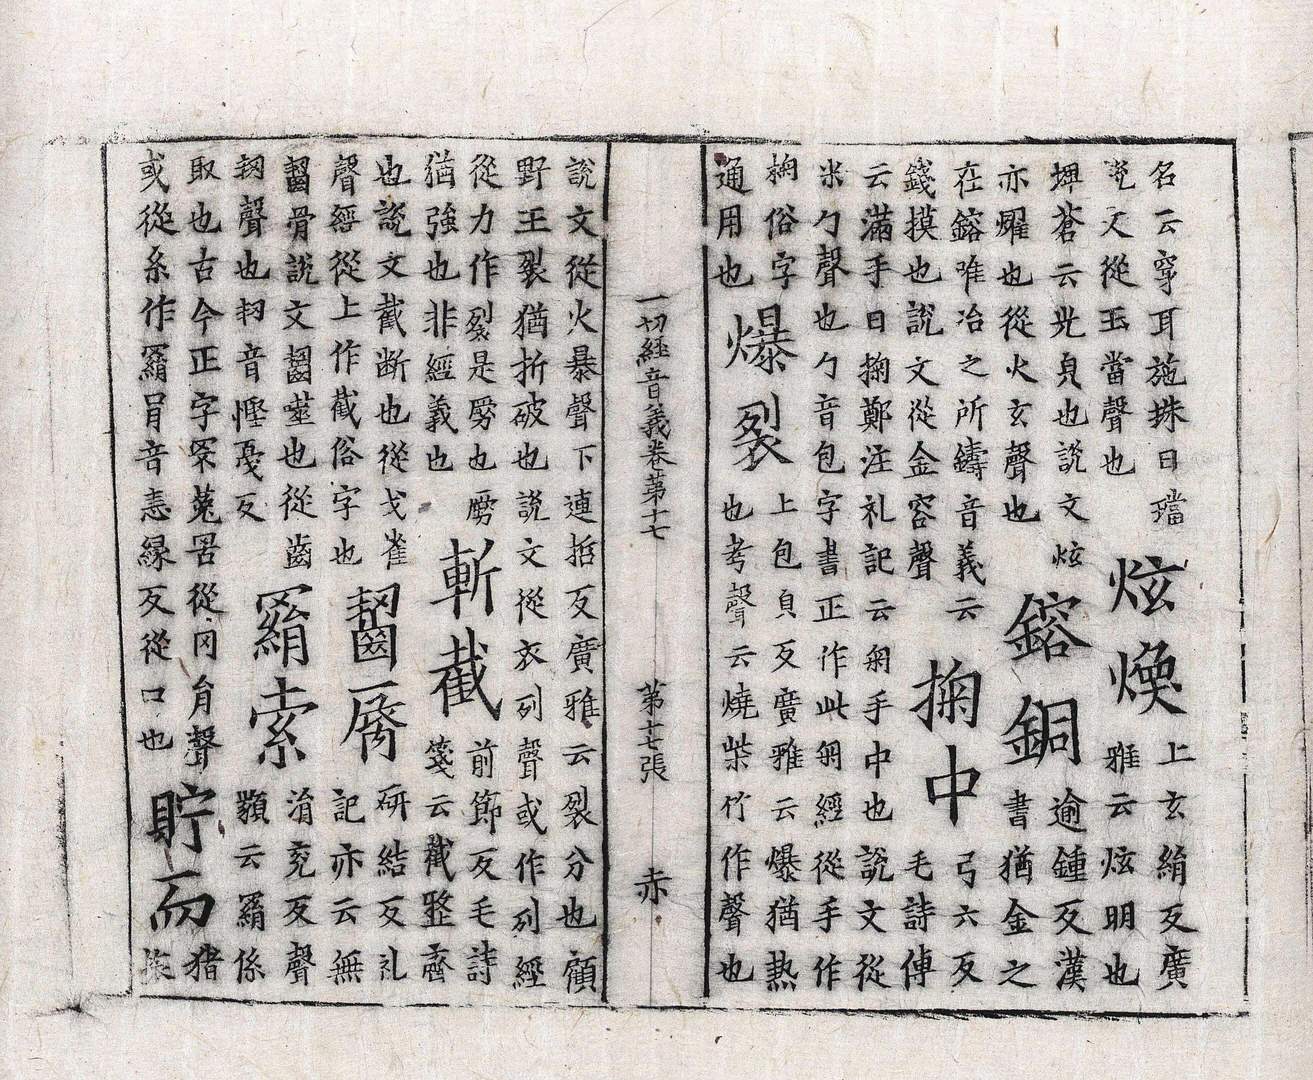 名云穿耳施珠曰璫
說文從玉當聲也 炫煥 上玄絹反廣
埤蒼云光皃也說文炫 雅云炫明也
亦耀也從火玄聲也 鎔銅 逾鍾反漢
在鎔唯冶之所鑄音義云 書猶金之
錢摸也說文從金容聲 掬中 弓六反
云滿手曰掬鄭注礼記云匊手中也說文從 毛詩傳
米勹聲也勹音包字書正作此匊經從手作
掬俗字 爆裂 上包皃反廣雅云爆猶熱
通用也 也考聲云燒柴竹作聲也
一切經音義卷第十七 第十七張 赤
說文從火暴聲下連哲反廣雅云裂分也顧
野王裂猶折破也說文從衣列聲或作列經
從力作裂是劈也 斬截 前節反毛詩
猶強也非經義也 箋云截整齊
也說文截断也從戈雀 齧骨 研結反礼
聲經從上作截俗字也 記亦云無
齧骨說文齧噬也從齒 淯兖反聲
㓞聲也㓞音慳戞反 羂索 纇云羂係
取也古今正字罘菟罟從冈肙聲 貯
或從糸作羂肙音恚緣反從口也 而 猪